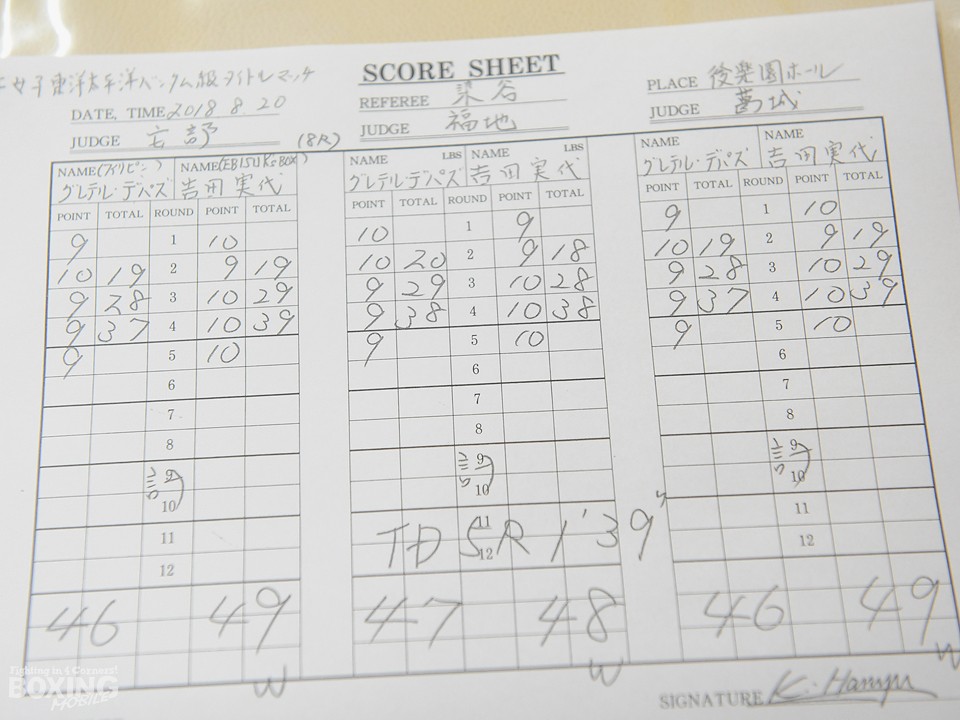 女子東洋太平洋バンタム級タイトルマッチ
SCORE SHEET
DATE, TIME 2018 8.20
REFEREE 染谷
PLACE 後楽園ホール
JUDGE
(8R)
JUDGE 福地
JUDGE 葛城
NAME (フィリピン) NAME (EBISU K's BOX)
NAME LBS NAME LBS
NAME NAME
グレテル・デパズ 吉田実代
グレテル・デパズ 吉田実代
グレテル・デパズ 吉田実代
POINT TOTAL ROUND POINT TOTAL
9 1 10
10 19 2 9 19
9 28 3 10 29
9 37 4 10 39
9 5 10
6
7
8
9
10
11
12
46 49
W
POINT TOTAL ROUND POINT TOTAL
10 1 9
10 20 2 9 18
9 29 3 10 28
9 38 4 10 38
9 5 10
6
7
8
9
10
11
12
TD 5R 1'39"
47 48
W
POINT TOTAL ROUND POINT TOTAL
9 1 10
10 19 2 9 19
9 28 3 10 29
9 37 4 10 39
9 5 10
6
7
8
9
10
11
12
46 49
W
SIGNATURE
Fighting in 4 Corners!
BOXING
MOBILE